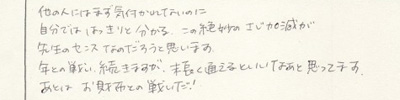 他の人にはまず気付かれてないのに
自分でははっきりと分かる。この絶妙のさじ加減が
先生のセンスなのだろうと思います。
年との戦い、続きますが、末長く通えるといいなあと思ってます。
あとは お財布との戦いだ!